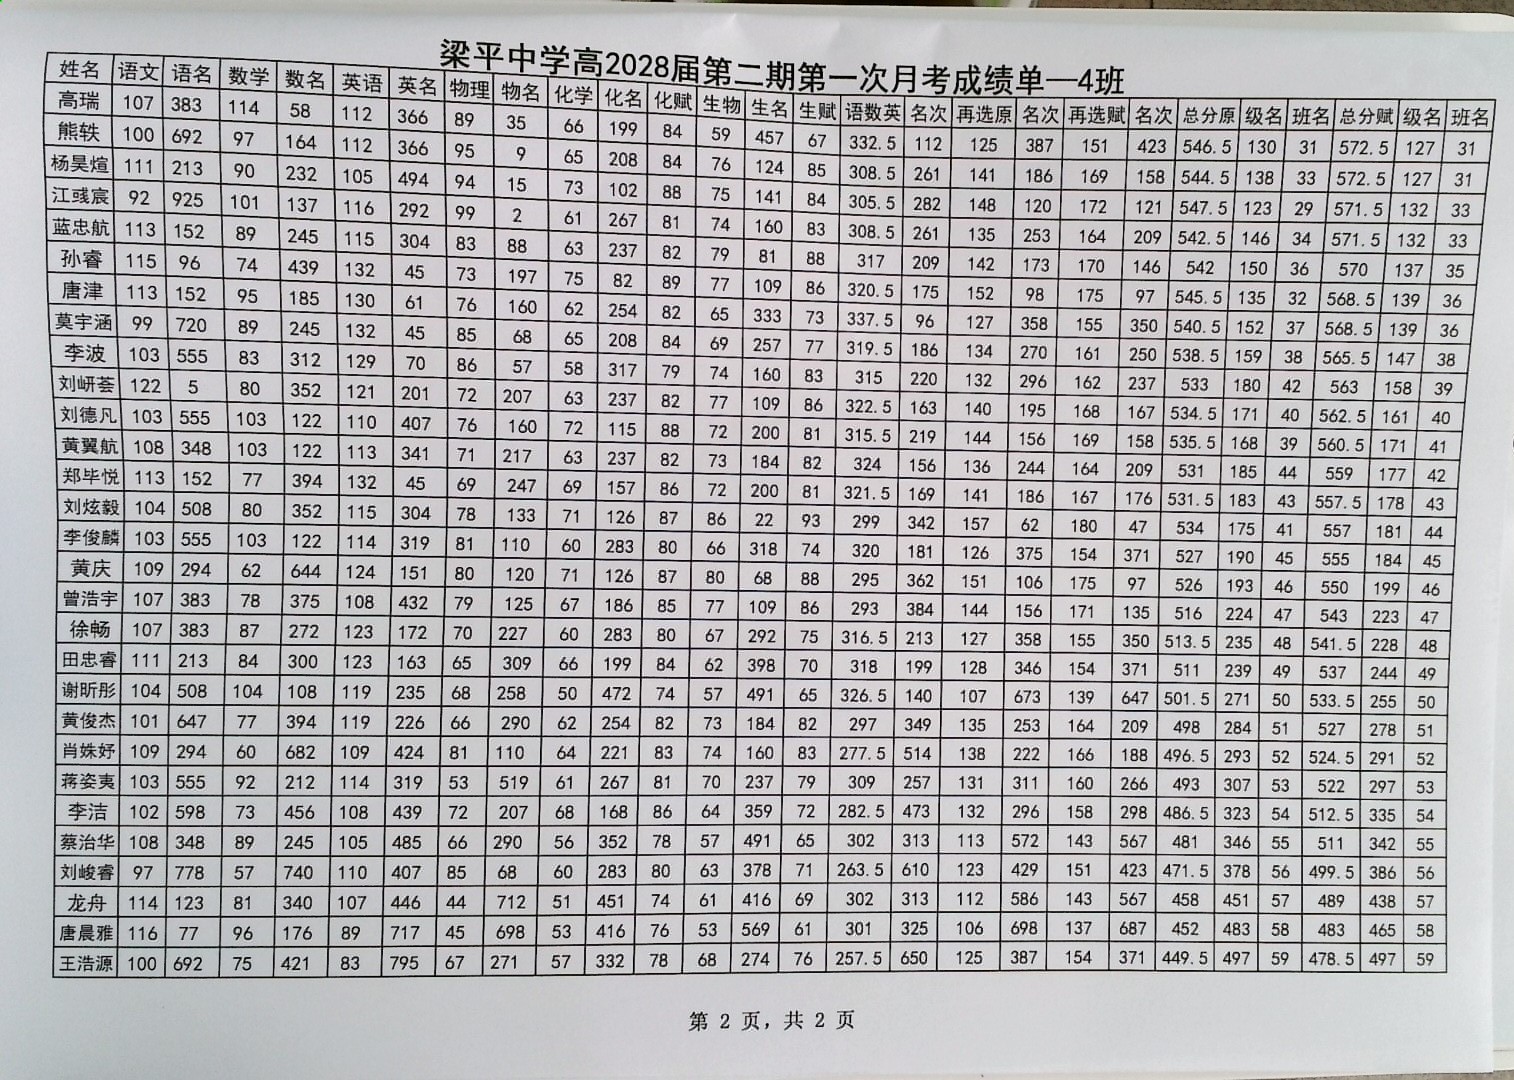 梁平中学高2028届第二期第一次月考成绩单—4班
姓名 语文 语名 数学 数名 英语 英名 物理 物名 化学 化名 化赋 生物 生名 生赋 语数英 名次 再选原 名次 再选赋 名次 总分原 级名 班名 总分赋 级名 班名
高瑞 107 383 114 58 112 366 89 35 66 199 84 59 457 67 332.5 112 125 387 151 423 546.5 130 31 572.5 127 31
熊轶 100 692 97 164 112 366 95 9 65 208 84 76 124 85 308.5 261 141 186 169 158 544.5 138 33 572.5 127 31
杨昊煊 111 213 90 232 105 494 94 15 73 102 88 75 141 84 305.5 282 148 120 172 121 547.5 123 29 571.5 132 33
江彧宸 92 925 101 137 116 292 99 2 61 267 81 74 160 83 308.5 261 135 253 164 209 542.5 146 34 571.5 132 33
蓝忠航 113 152 89 245 115 304 83 88 63 237 82 79 81 88 317 209 142 173 170 146 542 150 36 570 137 35
孙睿 115 96 74 439 132 45 73 197 75 82 89 77 109 86 320.5 175 152 98 175 97 545.5 135 32 568.5 139 36
唐津 113 152 95 185 130 61 76 160 62 254 82 65 333 73 337.5 96 127 358 155 350 540.5 152 37 568.5 139 36
莫宇涵 99 720 89 245 132 45 85 68 65 208 84 69 257 77 319.5 186 134 270 161 250 538.5 159 38 565.5 147 38
李波 103 555 83 312 129 70 86 57 58 317 79 74 160 83 315 220 132 296 162 237 533 180 42 563 158 39
刘岍荟 122 5 80 352 121 201 72 207 63 237 82 77 109 86 322.5 163 140 195 168 167 534.5 171 40 562.5 161 40
刘德凡 103 555 103 122 110 407 76 160 72 115 88 72 200 81 315.5 219 144 156 169 158 535.5 168 39 560.5 171 41
黄翼航 108 348 103 122 113 341 71 217 63 237 82 73 184 82 324 156 136 244 164 209 531 185 44 559 177 42
郑毕悦 113 152 77 394 132 45 69 247 69 157 86 72 200 81 321.5 169 141 186 167 176 531.5 183 43 557.5 178 43
刘炫毅 104 508 80 352 115 304 78 133 71 126 87 86 22 93 299 342 157 62 180 47 534 175 41 557 181 44
李俊麟 103 555 103 122 114 319 81 110 60 283 80 66 318 74 320 181 126 375 154 371 527 190 45 555 184 45
黄庆 109 294 62 644 124 151 80 120 71 126 87 80 68 88 295 362 151 106 175 97 526 193 46 550 199 46
曾浩宇 107 383 78 375 108 432 79 125 67 186 85 77 109 86 293 384 144 156 171 135 516 224 47 543 223 47
徐畅 107 383 87 272 123 172 70 227 60 283 80 67 292 75 316.5 213 127 358 155 350 513.5 235 48 541.5 228 48
田忠睿 111 213 84 300 123 163 65 309 66 199 84 62 398 70 318 199 128 346 154 371 511 239 49 537 244 49
谢昕彤 104 508 104 108 119 235 68 258 50 472 74 57 491 65 326.5 140 107 673 139 647 501.5 271 50 533.5 255 50
黄俊杰 101 647 77 394 119 226 66 290 62 254 82 73 184 82 297 349 135 253 164 209 498 284 51 527 278 51
肖姝妤 109 294 60 682 109 424 81 110 64 221 83 74 160 83 277.5 514 138 222 166 188 496.5 293 52 524.5 291 52
蒋姿夷 103 555 92 212 114 319 53 519 61 267 81 70 237 79 309 257 131 311 160 266 493 307 53 522 297 53
李洁 102 598 73 456 108 439 72 207 68 168 86 64 359 72 282.5 473 132 296 158 298 486.5 323 54 512.5 335 54
蔡治华 108 348 89 245 105 485 66 290 56 352 78 57 491 65 302 313 113 572 143 567 481 346 55 511 342 55
刘峻睿 97 778 57 740 110 407 85 68 60 283 80 63 378 71 263.5 610 123 429 151 423 471.5 378 56 499.5 386 56
龙舟 114 123 81 340 107 446 44 712 51 451 74 61 416 69 302 313 112 586 143 567 458 451 57 489 438 57
唐晨雅 116 77 96 176 89 717 45 698 53 416 76 53 569 61 301 325 106 698 137 687 452 483 58 483 465 58
王浩源 100 692 75 421 83 795 67 271 57 332 78 68 274 76 257.5 650 125 387 154 371 449.5 497 59 478.5 497 59
第 2 页，共 2 页